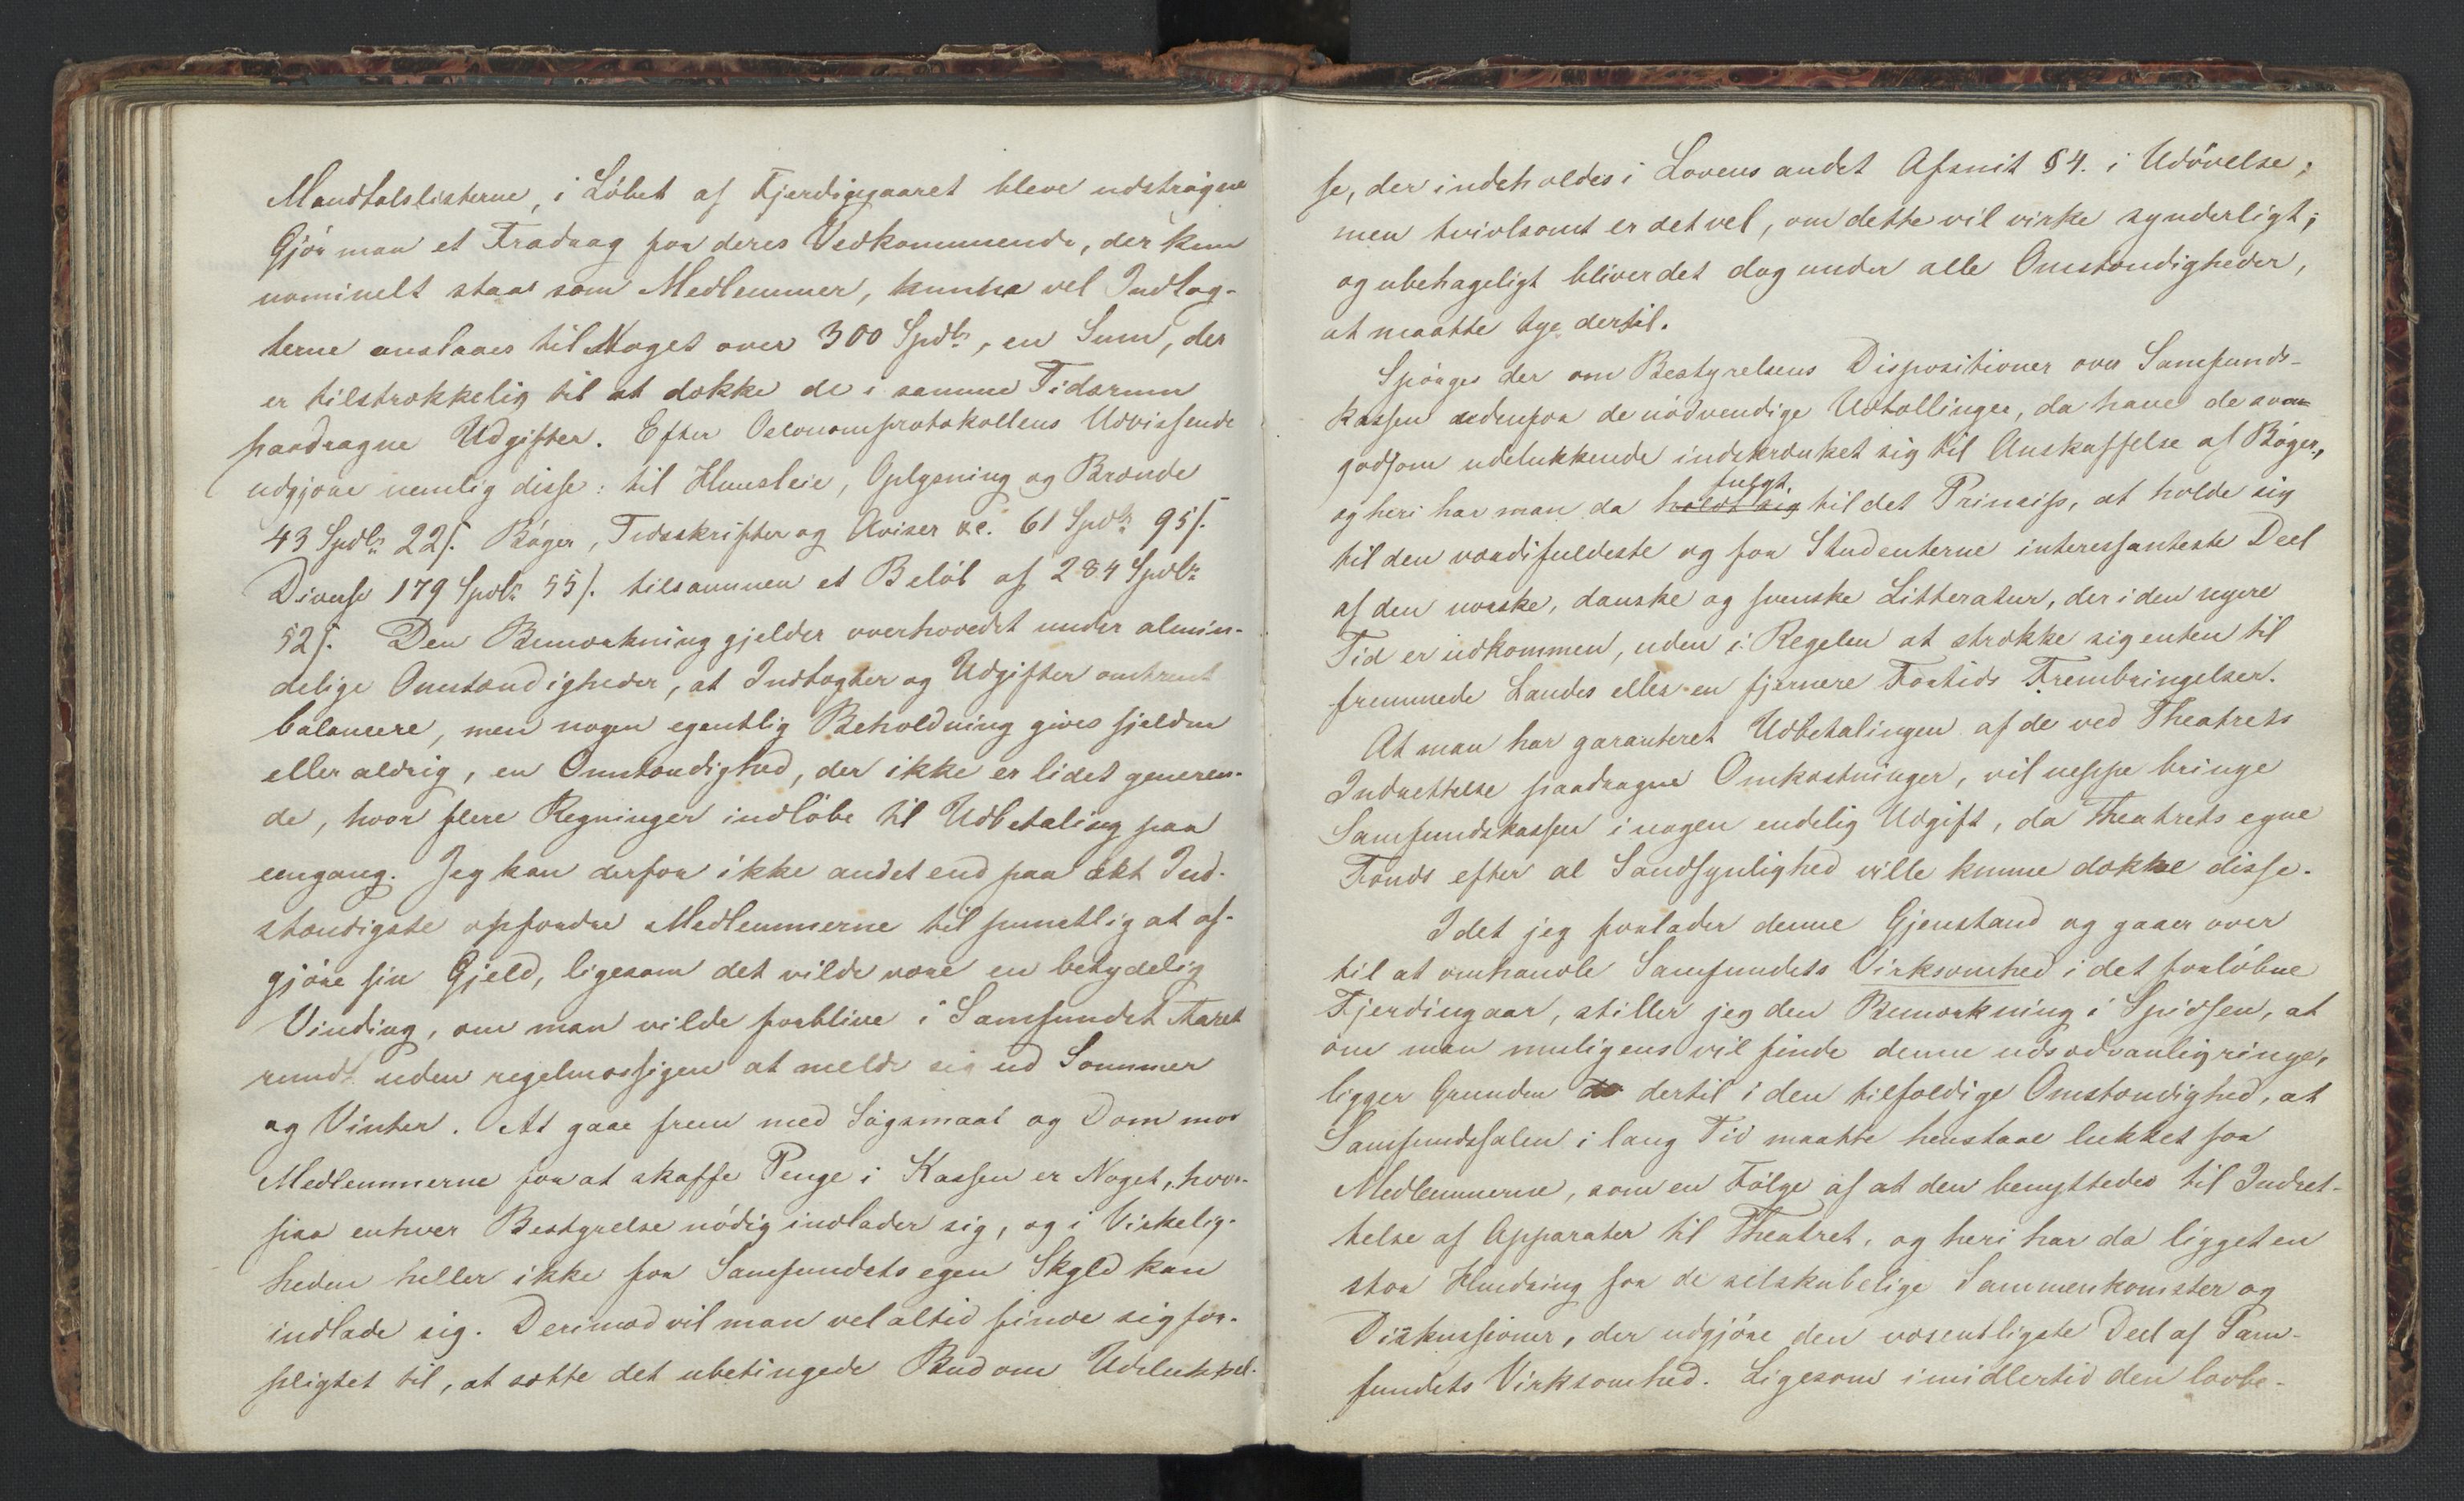 Mandtalslisterne, i Löbet af Fjerdigaaret bleve udströgne
Gjör man et Fradrag for deres Vedkommende, der kun
nominelt staae som Medlemmer, kunne vel Indtæg-
terne anslaaes til Noget over 300 Spdlr, en Sum, der
er tilstrækkelig til at dække de i samme Tidsrum
paadragne Udgifter. Efter Oeconomprotokollens Udvisende
udgjøre nemlig disse: til Huusleie, Oplysning og Brænde
43 Spdlr 22 s. Böger, Tidsskrifter og Aviser &c. 61 Spdlr 95 s.
Diverse 179 Spdlr 55 s. tilsammen et Belöb af 284 Spdlr
52 s. Den Bemærkning gjelder overhovedet under almin-
delige Omstændigheder, at Indtægter og Udgifter omtrent
balancere, men nogen egentlig Beholdning gives sjelden
eller aldrig, en Omstændighed, der ikke er lidet generen-
de, hvor flere Regninger indlöbe til Udbetaling paa
eengang. Jeg kan derfor ikke andet end paa det Ind-
stændigste opfordre Medlemmerne til punctlig at af-
gjöre sin Gjeld, ligesom det vilde være en betydelig
Vinding, om man vilde forblive i Samfundet Aaret
rundt uden regelmæssigen at melde sig ud Sommer
og Vinter. At gaae frem med Sögsmaal og Dom mod
Medlemmerne for at skaffe Penge i Kassen er Noget, hvor-
paa enhver Bestyrelse nödig indlader sig, og i Virkelig-
heden heller ikke for Samfundets egen Skyld kan
indlade sig. Derimod vil man vel altid finde sig for-
pligtet til, at sætte det ubetingede Bud om Udelukkel-
se, der indeholdes i Lovens andet Afsnit §4. i Udövelse;
men tvivlsomt er det vel, om dette vil virke synderligt;
og ubehageligt bliver det dog under alle Omstændigheder,
at maatte tye dertil.
Spörges der om Bestyrelsens Dispositioner over Samfunds-
kassen udenfor de nödvendige Udtællinger, da have de saa
godsom udelukkende indskrænket sig til Anskaffelse af Böger,
fulgt
og heri har man da holdt sig til det Princip, at holde sig
til den værdifuldeste og for Studenterne interessanteste Deel
af den norske, danske og svenske Litteratur, der i den nyere
Tid er udkommen, uden i Regelen at strække sig enten til
fremmede Landes eller en fjernere Fortids Frembringelser.
At man har garanteret Udbetalingen af de ved Theatrets
Indrettelse paadragne Omkostninger, vil neppe bringe
Samfundskassen i nogen endelig Udgift, da Theatrets egne
Fonds efter al Sandsynlighed ville kunne dække disse.
Idet jeg forlader denne Gjenstand og gaaer over
til at omhandle Samfundets Virksomhed i det forløbne
Fjerdingaar, stiller jeg den Bemærkning i Spidsen, at
om man muligens vil finde denne udsædvanlig ringe,
ligger Grunden dertil i den tilfældige Omstændighed, at
Samfundssalen i lang Tid maatte henstaae lukket for
Medlemmerne, som en Fölge af at den benyttedes til Indret-
telse af Apparater til Theatret, og heri har da ligget en
stor Hindring for de selskabelige Sammenkomster og
Diskussioner, der udgjöre den væsentligste Deel af Sam-
fundets Virksomhed. Ligesom imidlertid den lovbe-